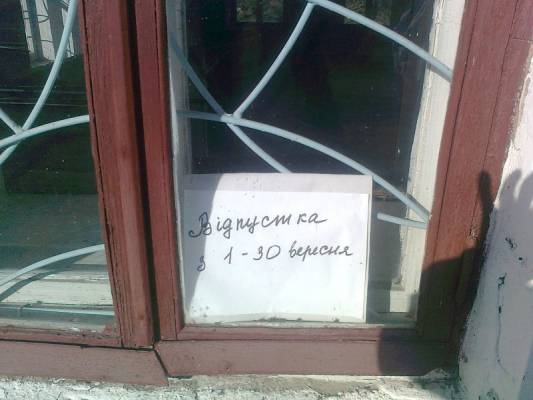 Відпустка
з 1-30 вересня